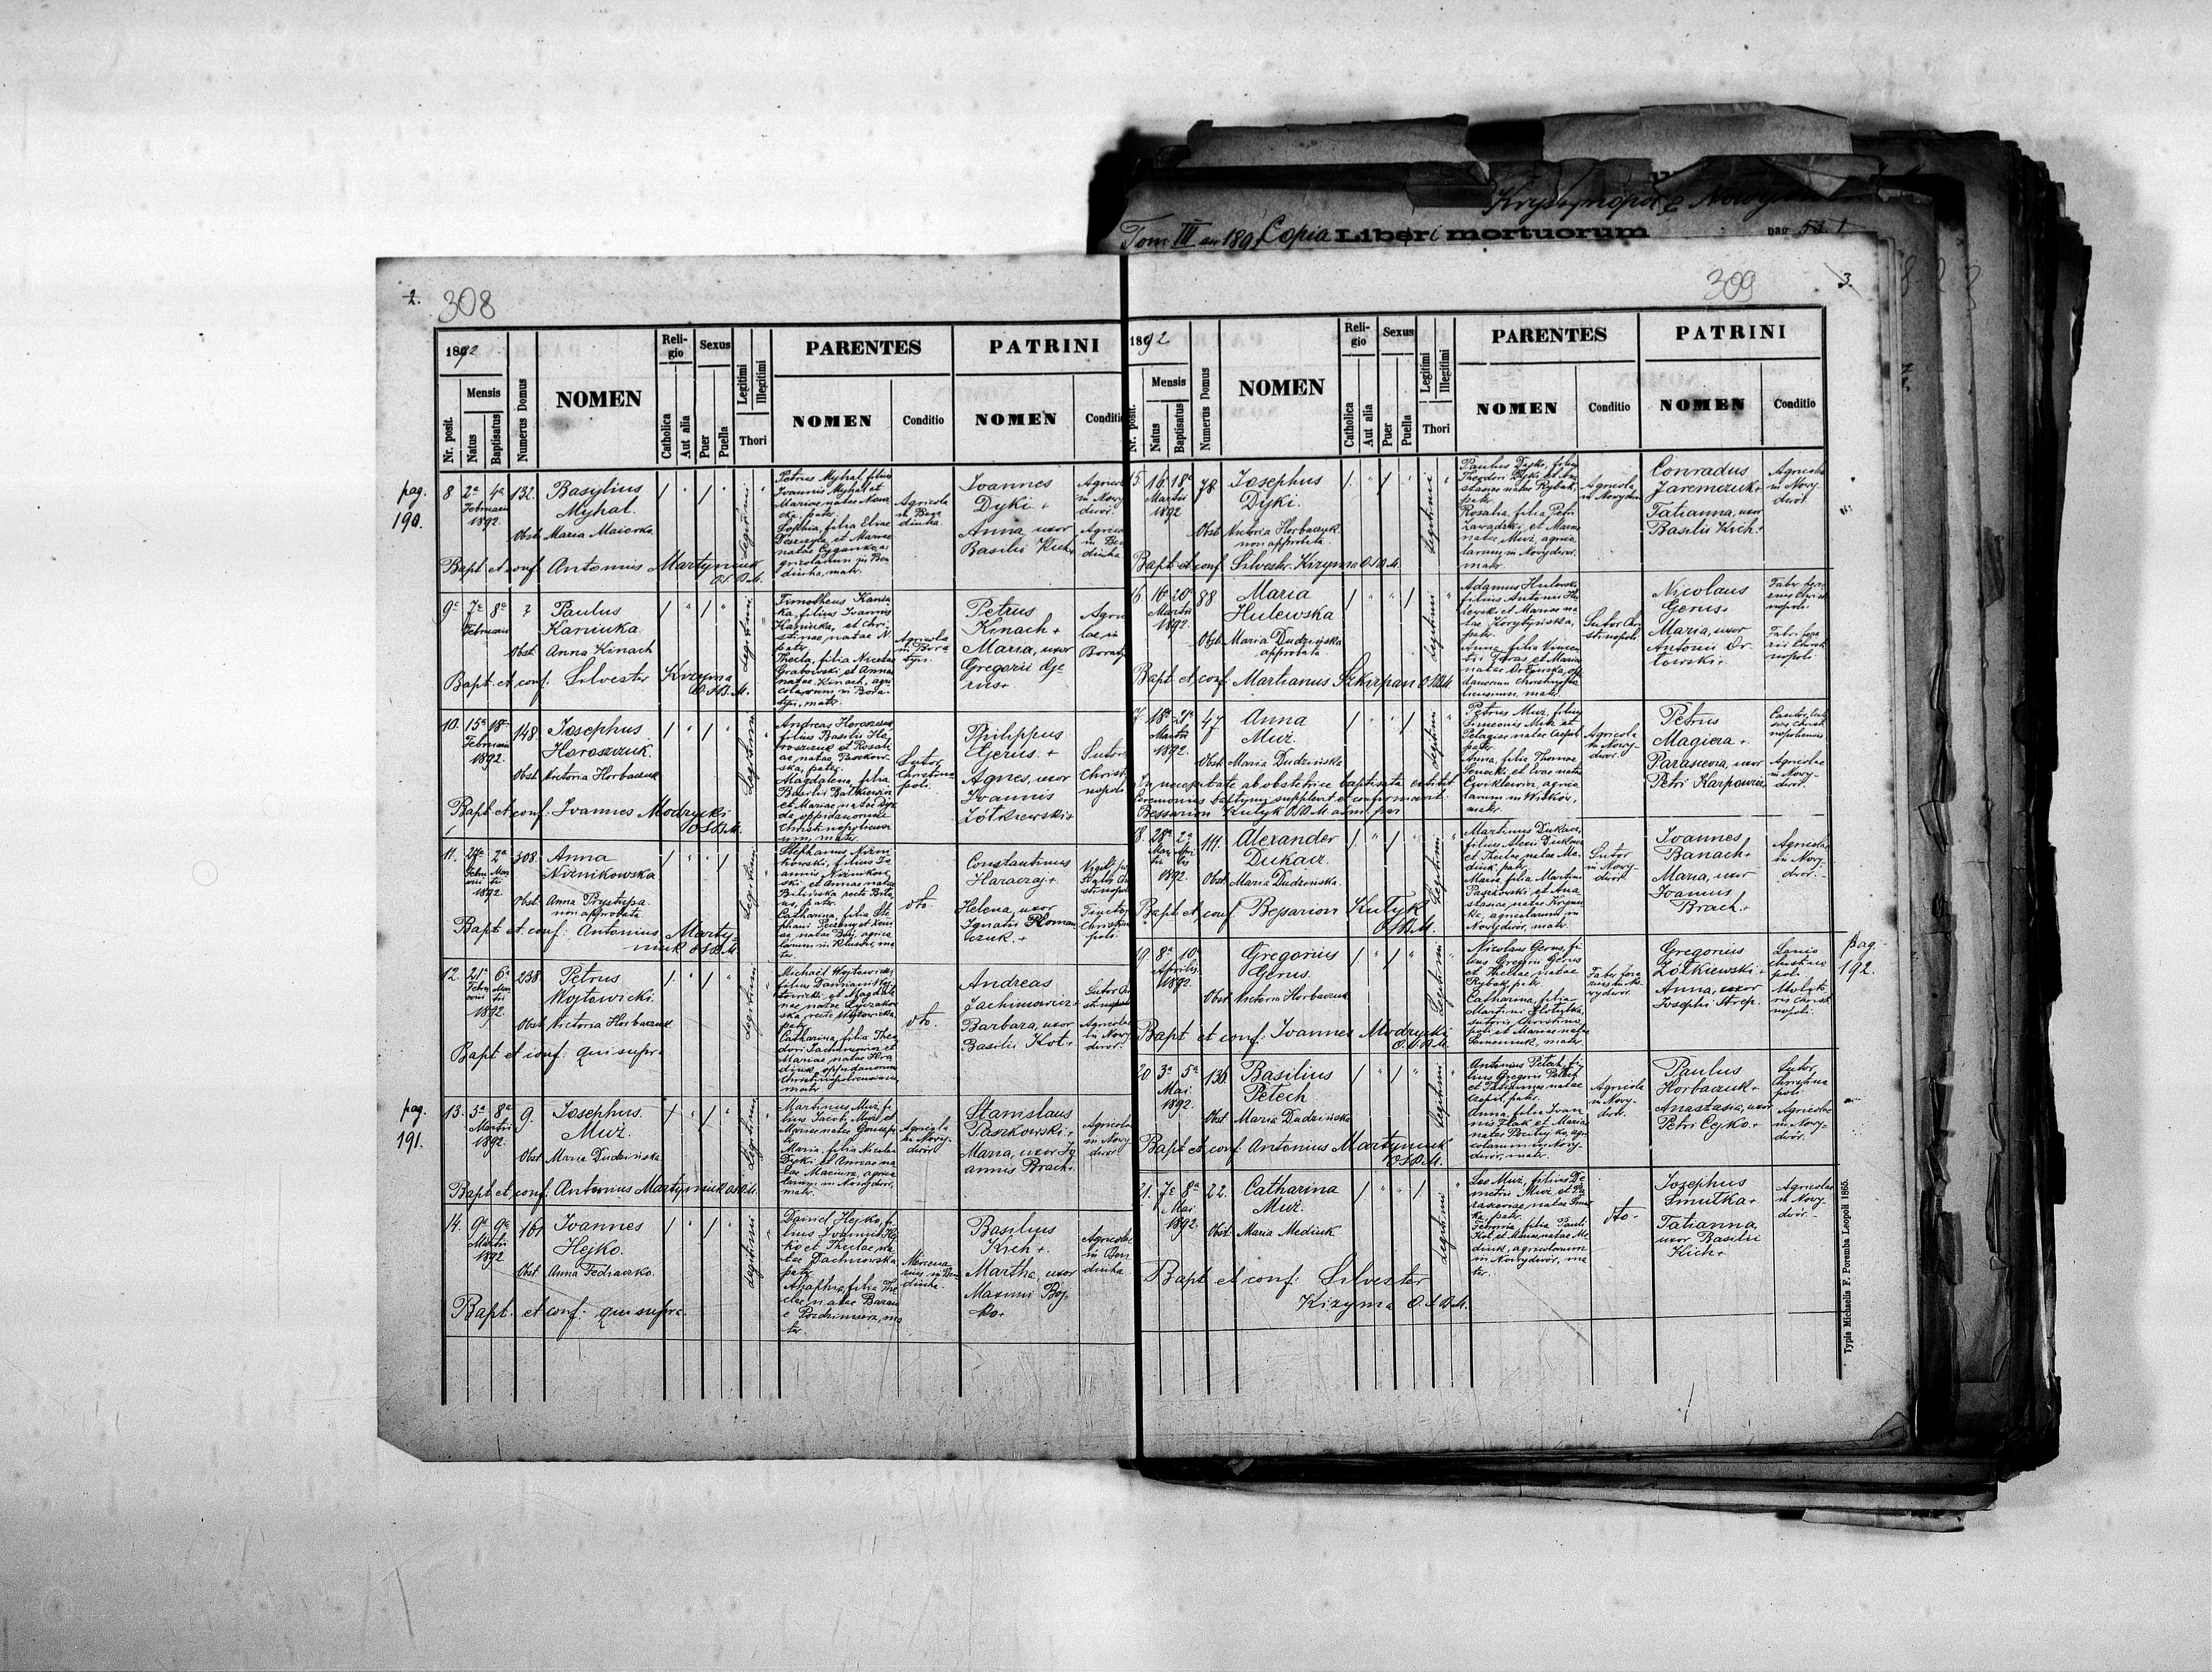 Krystynopol & Nowydwór
Tom III an 189 Copia Liberi mortuorum pag 1
2. 308
1892
Nr. posit.
Mensis
Natus
Baptisatus
Numerus Domus
NOMEN
Reli-
gio
Catholica
Aut alia
Sexus
Puer
Puella
Legitimi
Illegitimi
Thori
PARENTES
NOMEN
Conditio
PATRINI
NOMEN
Conditio
pag.
190.
8 2a 4a 132.
Februarii
1892.
Basylius
Myhal.
Obst. Maria Maierko
Legitimi
Petrus Myhal, filius
Ioannis Myhal et
Mariae natae
pater.
Sophia, filia Eliae
et Mariae
natae Cyganko, a-
gricolarum in Ben
diuha, matr.
Agricola
in Ben
diuha.
Ioannes
Dyki +
Anna uxor
Basilii Kich +
Agricol
in Nowy
dwór.
Agricol
in Ben
diuha.
Bapt et conf. Antonius Martyniuk
O.S.B.M.
9a 7a 8a 7
Februarii
Paulus
Kaniuka.
Obst. Anna Kinach
Legitimi
Timotheus Kaniu
ka, filius Ioannis
Kaniuka, et Chri-
stinae natae N.
pater.
Thecla, filia Nicolai
Grabowski et Annae
natae Kinach, agri
colarum in Bora-
tyn, matr.
Agricola
in Bora
tyn.
Petrus
Kinach +
Maria, uxor
Gregorii Gje
rus +
Agrico
lae in
Boraty
Bapt. et conf: Silvester Kizyma
O.S.B.M.
10. 15a 18a 148
Februarii
1892.
Iosephus
Haraszczuk.
Obst. Victoria Horbaczuk
Legitimi
Andreas Haraszczuk
filius Basilii Ha
raszczuk et Rosali
ae, natae Paszkow-
ska, pater.
Magdalena, filia
Basilii Batkiewicz
et Mariae natae Dyk
da, oppidanorum
Christinopoliensi
um, mater.
Sutor
Christino
poli.
Philippus
Gjerus. +
Agnes, uxor
Ioannis
Zółkiewski +
Sutor
Christi
nopoli
Bapt et conf: Ioannes Modrycki
O.S.B.M.
11. 27a 2a 308.
Febru Mar
arii tii
1892
Anna
Niżnikowska
Obst. Anna Prystupa
non approbata
Legitimi
Stephanus Niżni-
kowski, filius Io
annis Niżnikow
ski, et Annae natae
Bilińska
pater.
Catharina, filia Ste
phani
natae Buj, agrico
larum in Klusów, ma
ter.
dto.
Constantinus
Haraczaj +
Helena, uxor
Ignatii Roman
czuk. +
Christi
poli.
Bapt et conf: Antonius Marty-
niuk O.S.B.M.
12. 21a 6a 238.
Febru Mar
arii tii
1892.
Petrus
Wojtowicki
Obst. Victoria Horbaczuk
Legitimi
Michaël Wojtowicki,
filius Damiani Woj
towicki, et Magdale
nae, natae Łyczakow
ska, recte Wojtowicka,
pater.
Catharina, filia Theo
dori Iachimowicz et
Mariae natae Hra
diuk, oppidanorum
Christinopoliensium,
mater
dto.
Andreas
Jachimowicz +
Barbara, uxor
Basilii Kot +
Sutor Chri
stinopoli
Agricola
in Nowy
dwór.
Bapt et conf: qui supr.
pag.
191.
13. 3a 8a 9.
Martii
1892.
Iosephus.
Muż.
Obst. Maria Dudzińska.
Legitimi
Martinus Muż, fi
lius Iacobi Muż et
Mariae natae
Maria, filia Nicolai
Dyki, et Annae na
tae Maciura, agrico
larum in Nowydwór,
matr.
Agricola
in Nowy-
dwór.
Stanislaus
Paszkowski +
Maria, uxor Io
annis Brach +
Agricola
in Nowy
dwór.
Bapt et conf: Antonius Martyniuk O.S.B.M.
14. 9a 9a 161
Martii
1892
Ioannes
Hejko.
Obst. Anna Fedraczko.
Legitimi
Daniel Hejko, fi-
lius Ioannis Hej
ko et Theclae, na
tae Pachnowska
patr
Ahaphia, filia The
clae, natae Baran
e Pozdzimierz, ma
ter.
Mercena
rius in Ben
diuha.
Basilius
Kich +
Martha, uxor
Maximi Boj
ko +
Agricolae
in Ben
diuha
Bapt. et conf. qui supra.
309 3.
1892
Nr. posit.
Mensis
Natus
Baptisatus
Numerus Domus
NOMEN
Reli-
gio
Catholica
Aut alia
Sexus
Puer
Puella
Legitimi
Illegitimi
Thori
PARENTES
NOMEN
Conditio
PATRINI
NOMEN
Conditio
15. 16a 18a 78.
Martii
1892
Iosephus
Dyki.
Obst. Victoria Horbaczuk
non approbata
Legitimi
Paulus Dyki, filius
Theodori Dyki et Ana
stasiae natae Rybak,
pater.
Rosalia, filia Petri
Zawadzki, et Mariae
natae Muż, agrico
larum in Nowydwor.
matr.
Agricola
in Nowydwor
Conradus
Jaremczuk +
Tatianna, uxor
Basilii Kich +
Agricola
in Nowy-
dwór.
Bapt et conf Silvester Kizyma O.S.B.M.
16. 16a 20a 88
Martii
1892.
Maria
Hulewska
Obst. Maria Dudzińska
approbata
Legitimi
Adamus Hulewski,
filius Antonii Hu
lewski et Mariae na
tae Korytyńska,
patr.
Anna, filia Vincen
tii Gjeras et Mariae
natae
danorum Christinopo
liensium, matr.
Sutor Chri
stinopoli
Nicolaus
Gerus +
Maria, uxor
Antonii Or
łowski +
Faber ferra
rius Christi
nopoli
Fabri ferra
rii Christi
nopoli.
Bapt et conf. Martianus Szkirpan O.S.B.M.
17. 18a 21a 47
Martii
1892.
Anna
Muż.
Obst. Maria Dudzińska
Legitimi
Petrus Muż, filius
Simeonis Muż et
Pelagiae natae Czepil
patr.
Anna, filia Thomae
Senecki, et Evae natae
Cwiklewicz, agrico
larum in Witków,
matr.
Agricola
in Nowy-
dwór.
Petrus
Magiera +
Parascevia, uxor
Petri Karpowicz
Cantor
Christi
nopoliensis
Agricolae
in Nowy-
dwór.
In necessitate ab obstetrice baptisata extitit.
Ceremonias baptismi supplevit et confirmavit
Bessarion Kulyk O.S.B.M. adm. par.
18. 28a 2a 111.
Mar Apri
tii lis
1892.
Alexander
Dukacz.
Obst. Maria Dudzińska.
Legitimi
Martinus Dukacz,
filius Alexii Dukacz
et Theclae, natae Me-
diuk, patr.
Maria, filia Martini
Paszkowski, et Ana
stasiae, natae Krynic
ka, agricolarum in
Nowydwór, matr.
Sutor
in Nowy-
dwór.
Ioannes
Banach +
Maria, uxor
Ioannis
Brach. +
Agricolae
in Nowy-
dwór.
Bapt et conf Bessarion Kulyk
O.S.B.M.
19. 8a 10a
Aprilis
1892.
Gregorius
Gerus.
Obst. Victoria Horbaczuk
Legitimi
Nicolaus Gerus, fi
lius Gregorii Gerus
et Theclae, natae
Rybak, patr.
Catharina, filia
Martini Hołotyłka,
sutoris Christino
poli et Mariae natae
Semeniuk, matr.
Faber ferra
rius in No
wydwór.
Gregorius
Zółkiewski +
Anna, uxor
Iosephi Strep.
Lanio
Christino
poli.
Christi
nopoli.
pag.
192.
Bapt et conf: Ioannes Modrycki
O.S.B.M.
20. 3a 5a 136.
Mai
1892.
Basilius
Petech
Obst. Maria Dudzińska
Legitimi
Antonius Petech, fi
lius Gregorii Petech
et Tatiannae natae
Czepil, patr.
Anna, filia Ioan
nis Flak et Mariae
natae Poritzyka, agri
colarum in Nowy-
dwór, matr.
Agricola
in Nowy-
dwór.
Paulus
Horbaczuk +
Anastasia, uxor
Petri Cejko +
Sutor,
Christino
poli
Agricolae
in Nowy=
dwór.
Bapt et conf: Antonius Martyniuk
O.S.B.M.
21. 7a 8a 22.
Mai
1892.
Catharina
Muż.
Obst. Maria Mediuk
Legitimi
Leo Muż, filius De
metrii Muż, et Pa
rasceviae, natae Smut
ka, patr.
Febronia, filia Pauli
Kot, et Annae, natae Me
diuk, agricolarum
in Nowydwór, ma
ter.
dto.
Iosephus
Smutka +
Tatianna,
uxor Basilii
Kich +
Agricolae
in Nowy-
dwór.
Bapt et conf: Silvester
Kizyma O.S.B.M.
Typis Michaelis F. Poremba Leopoli 1865.